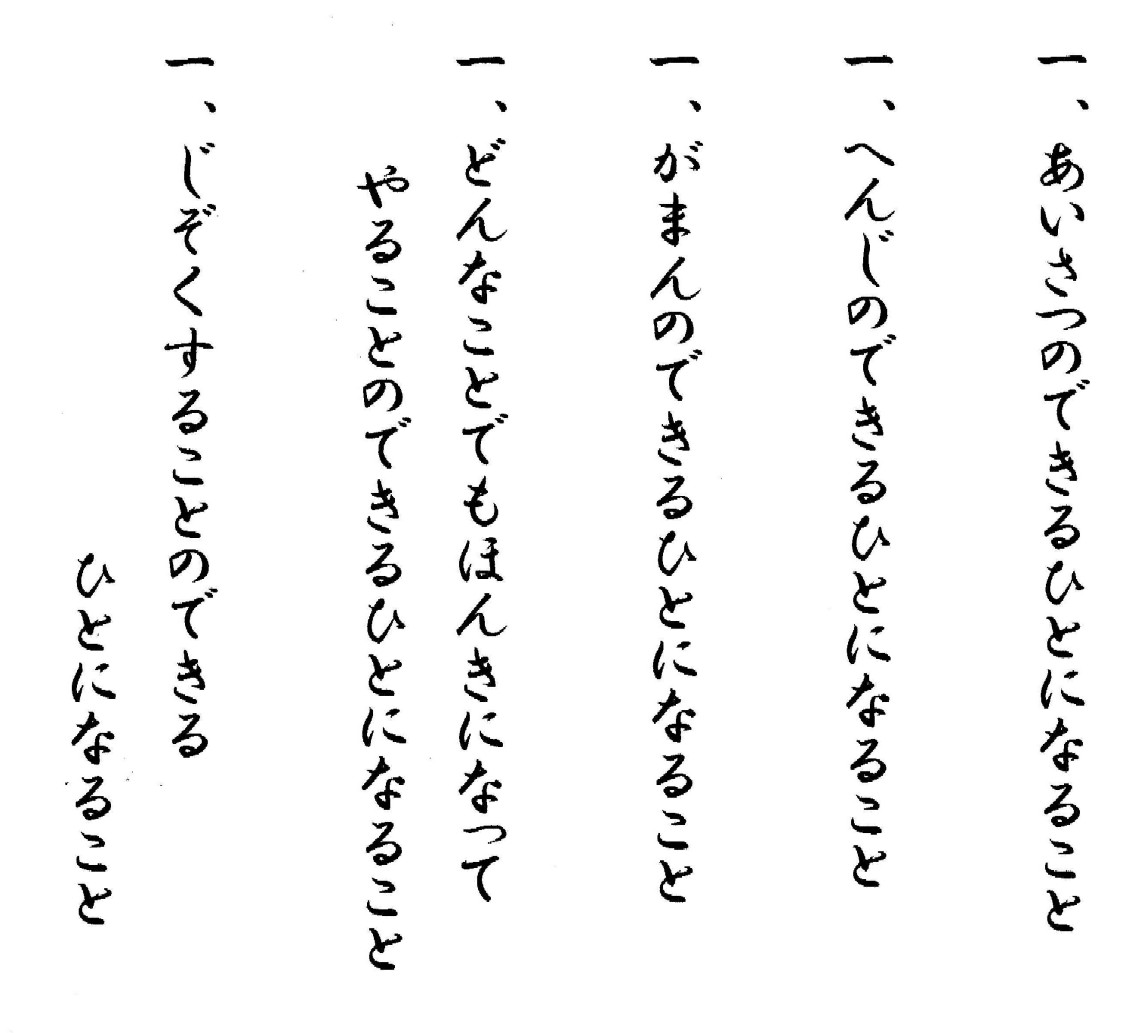 一、あいさつのできるひとになること
一、へんじのできるひとになること
一、がまんのできるひとになること
一、どんなことでもほんきになって
やることのできるひとになること
一、じぞくすることのできる
ひとになること